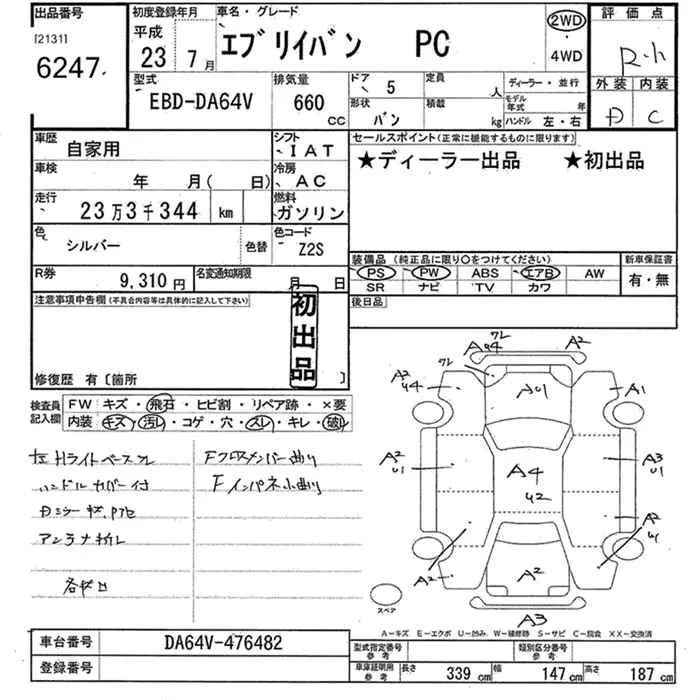 出品番号
[2131]
6247
初度登録年月
平成
23年 7月
車名・グレード
エブリイバン PC
2WD
・
4WD
評価点
R・h
外装 内装
D C
型式
EBD-DA64V
排気量
660 CC
ドア 5
定員 人
ディーラー・並行
形状 バン
積載 kg
モデル年式 年
ハンドル 左・右
車歴 自家用
シフト IAT
セールスポイント(正常に機能するものに限ります)
★ディーラー出品 ★初出品
車検 年 月( 日)
冷房 AC
走行 23万3千344 km
燃料 ガソリン
色 シルバー 色替
色コード Z2S
装備品 (純正品に限り○をつけてください)
新車保証書
PS PW ABS エアB AW
有・無
SR ナビ TV カワ
R券 9,310円
名変通知期限 月 日
後日品
注意事項申告欄(不具合内容等は具体的に記入して下さい)
初出品
修復歴 有〔箇所 〕
検査員記入欄
FW キズ・飛石・ヒビ割・リペア跡・×要
内装 キズ・汚レ・コゲ・穴・スレ・キレ・破レ
左Hライトベースワレ
Fクロスメンバー曲り
ハンドルカバー付
Fインパネ小曲り
Dミラーキズ、タレ
アンテナオレ
各サビ
ワレ
A44 A2
ワレ
A2
44
A01
A1
A2
U1
A4
42
A3
U1
A2
A2
A2
A3
スペア
A−キズ E−エクボ U−凹み W−補修跡 S−サビ C−腐食 XX−交換済
車台番号 DA64V-476482
登録番号
型式指定番号 参考
類別区分番号 参考
車庫証明用 参考
長さ 339 cm
幅 147 cm
高さ 187 cm